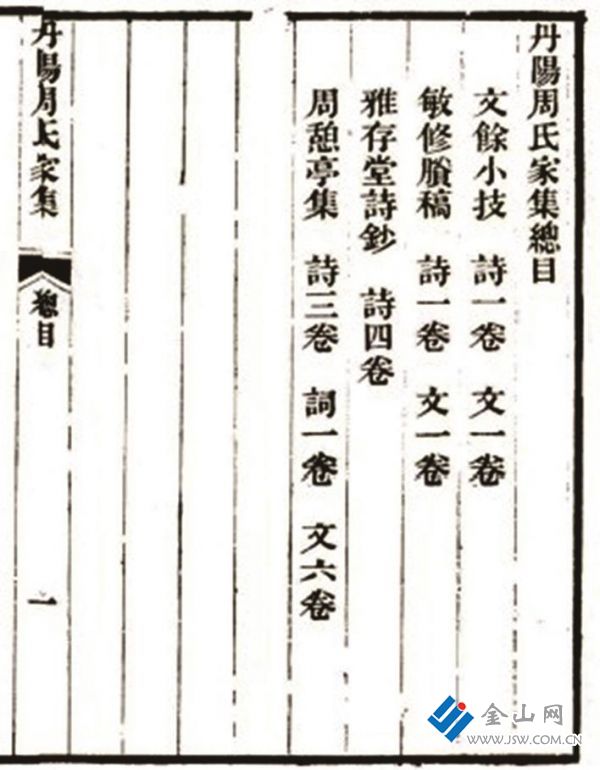 丹陽周氏家集總目
文餘小技 詩一卷 文一卷
敏修賸稿 詩一卷 文一卷
雅存堂詩鈔 詩四卷
周憩亭集 詩三卷 詞一卷 文六卷
丹陽周氏家集 總目 一
金山网
WWW.JSW.COM.CN